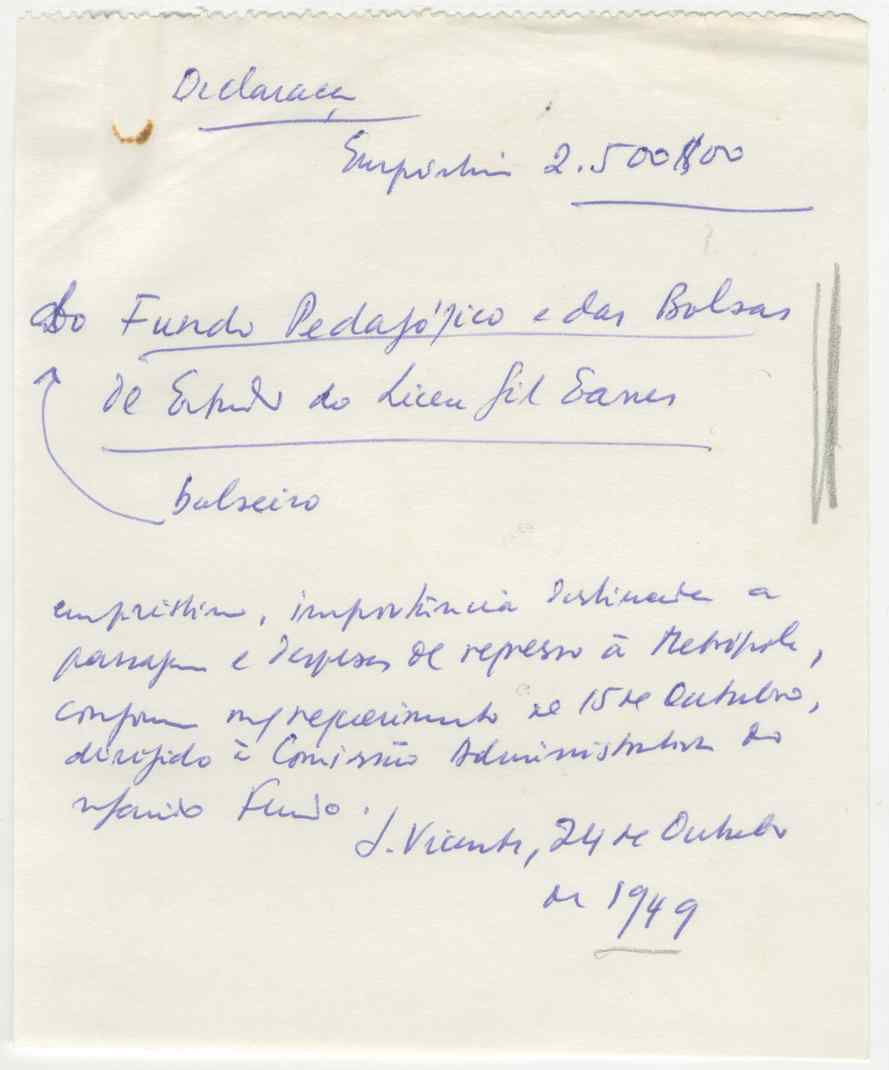 Declaração
Empréstimo 2.500$00
do Fundo Pedagógico e das Bolsas
de Estudo do Liceu Gil Eanes
bolseiro
empréstimo, importância destinada a
passagem e despesas de regresso à Metrópole,
conforme requerimento de 15 de Outubro,
dirigido à Comissão Administrativa do
referido Fundo.
S. Vicente, 24 de Outubro
de 1949